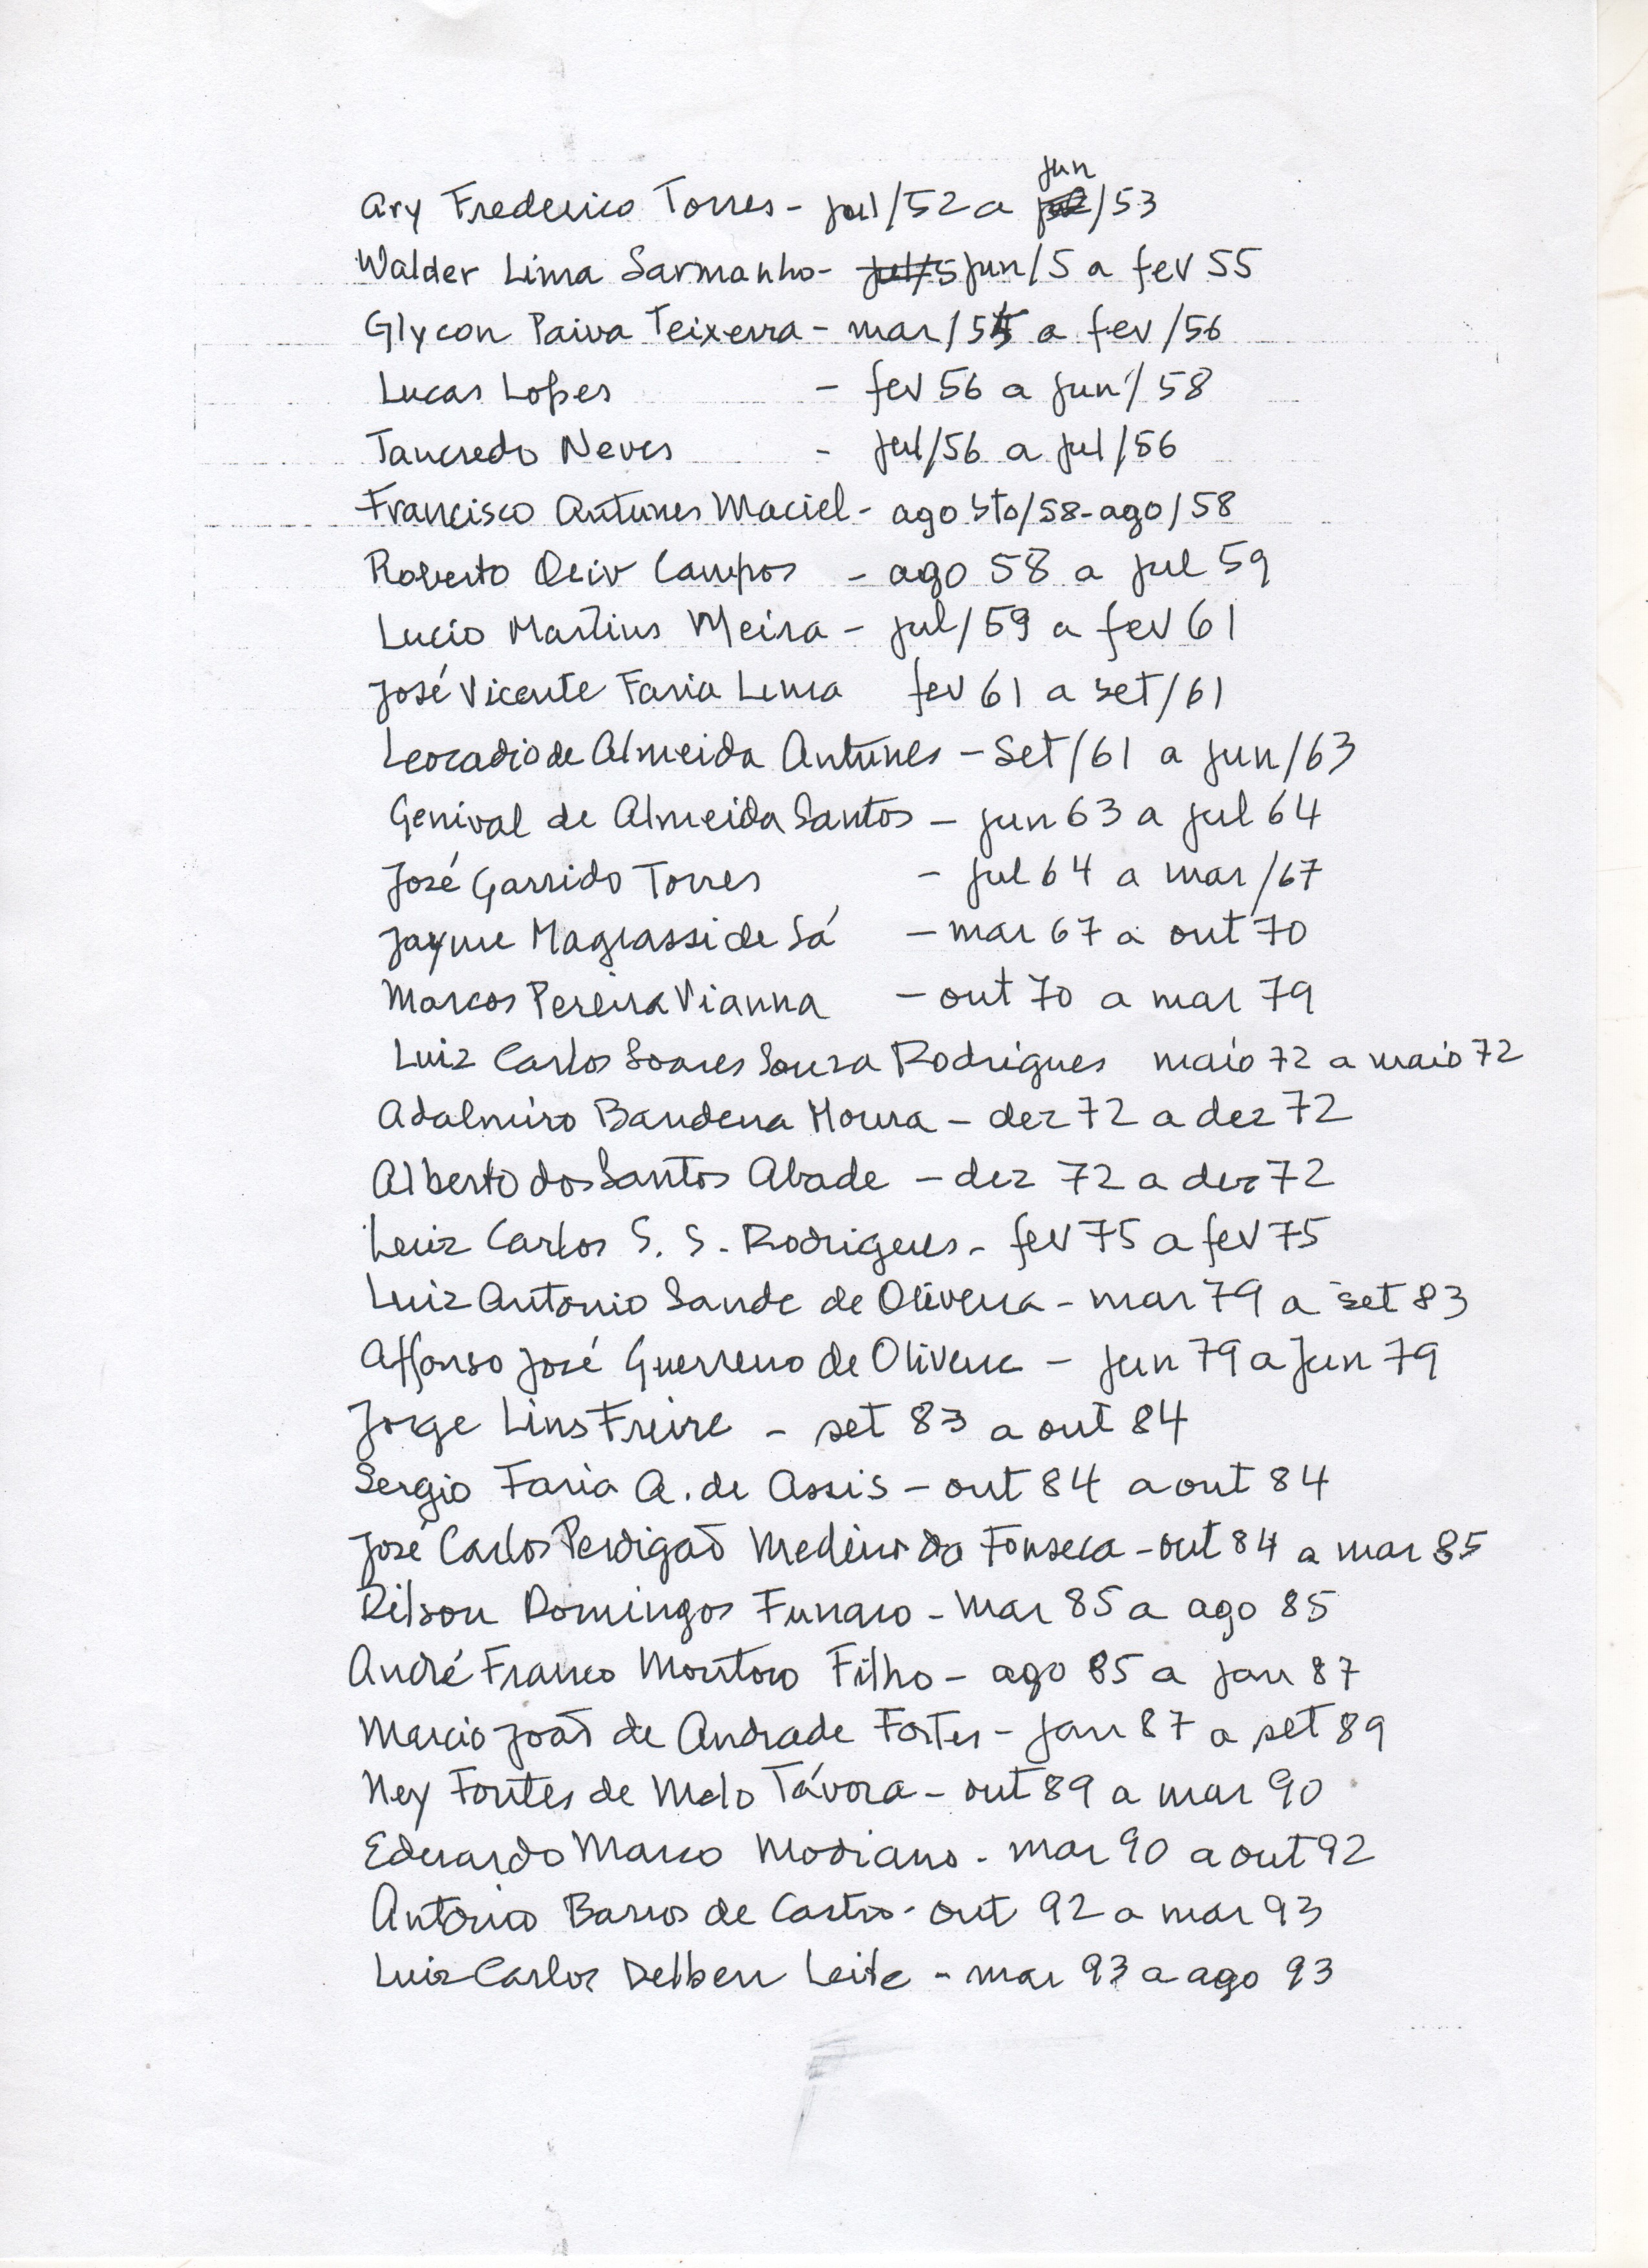 Ary Frederico Torres - jul/52 a jun/53
Walder Lima Sarmanho - jul/5 jun/5 a fev 55
Glycon Paiva Teixeira - mar/55 a fev/56
Lucas Lopes - fev 56 a jun/58
Tancredo Neves - jul/56 a jul/56
Francisco Antunes Maciel - agosto/58-ago/58
Roberto Oliv Campos - ago 58 a jul 59
Lucio Martins Meira - jul/59 a fev 61
José Vicente Faria Lima fev 61 a set/61
Leocadio de Almeida Antunes - set/61 a jun/63
Genival de Almeida Santos - jun 63 a jul 64
José Garrido Torres - jul 64 a mar/67
Jayme Magrassi de Sá - mar 67 a out 70
Marcos Pereira Vianna - out 70 a mar 79
Luiz Carlos Soares Souza Rodrigues maio 72 a maio 72
Adalmiro Bandeira Moura - dez 72 a dez 72
Alberto dos Santos Abade - dez 72 a dez 72
Luiz Carlos S. S. Rodrigues - fev 75 a fev 75
Luiz Antonio Sande de Oliveira - mar 79 a set 83
Affonso José Guerreiro de Oliveira - jun 79 a Jun 79
Jorge Lins Freire - set 83 a out 84
Sergio Faria A. de Assis - out 84 a out 84
José Carlos Perdigão Medeiros da Fonseca - out 84 a mar 85
Dilson Domingos Funaro - mar 85 a ago 85
André Franco Montoro Filho - ago 85 a jan 87
Marcio João de Andrade Fortes - jan 87 a set 89
Ney Fontes de Melo Távora - out 89 a mar 90
Eduardo Marco Modiano - mar 90 a out 92
Antonio Barros de Castro - out 92 a mar 93
Luiz Carlos Delben Leite - mar 93 a ago 93